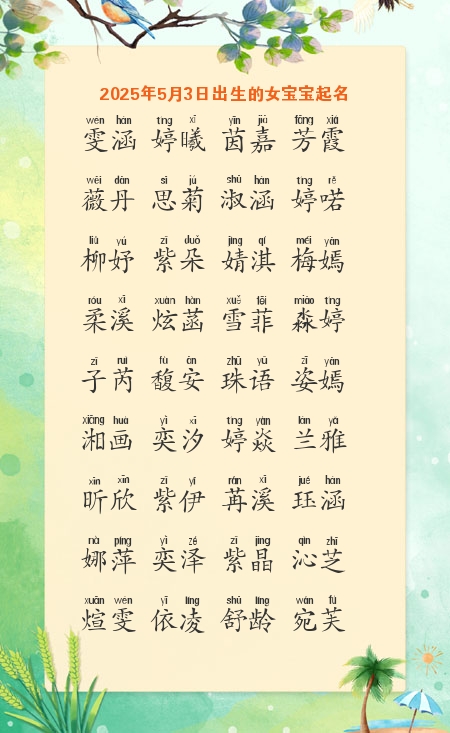 2025年5月3日出生的女宝宝起名
wén hán tíng xī yīn jiā fāng xiá
雯涵 婷曦 茵嘉 芳霞
wēi dān sī jú shū hán tíng rě
薇丹 思菊 淑涵 婷喏
liǔ yú zǐ duǒ jìng qí méi yān
柳妤 紫朵 婧淇 梅嫣
róu xī xuàn hàn xuě fēi miǎo tíng
柔溪 炫菡 雪菲 淼婷
zǐ ruì fù ān zhū yǔ zī yān
子芮 馥安 珠语 姿嫣
xiāng huà yì xī tíng yàn lán yǎ
湘画 奕汐 婷焱 兰雅
xīn xīn zǐ yī rǎn xī jué hán
昕欣 紫伊 苒溪 珏涵
nà píng yì zé zǐ jīng qìn zhī
娜萍 奕泽 紫晶 沁芝
xuān wén yī líng shū líng wǎn fú
煊雯 依凌 舒龄 宛芙